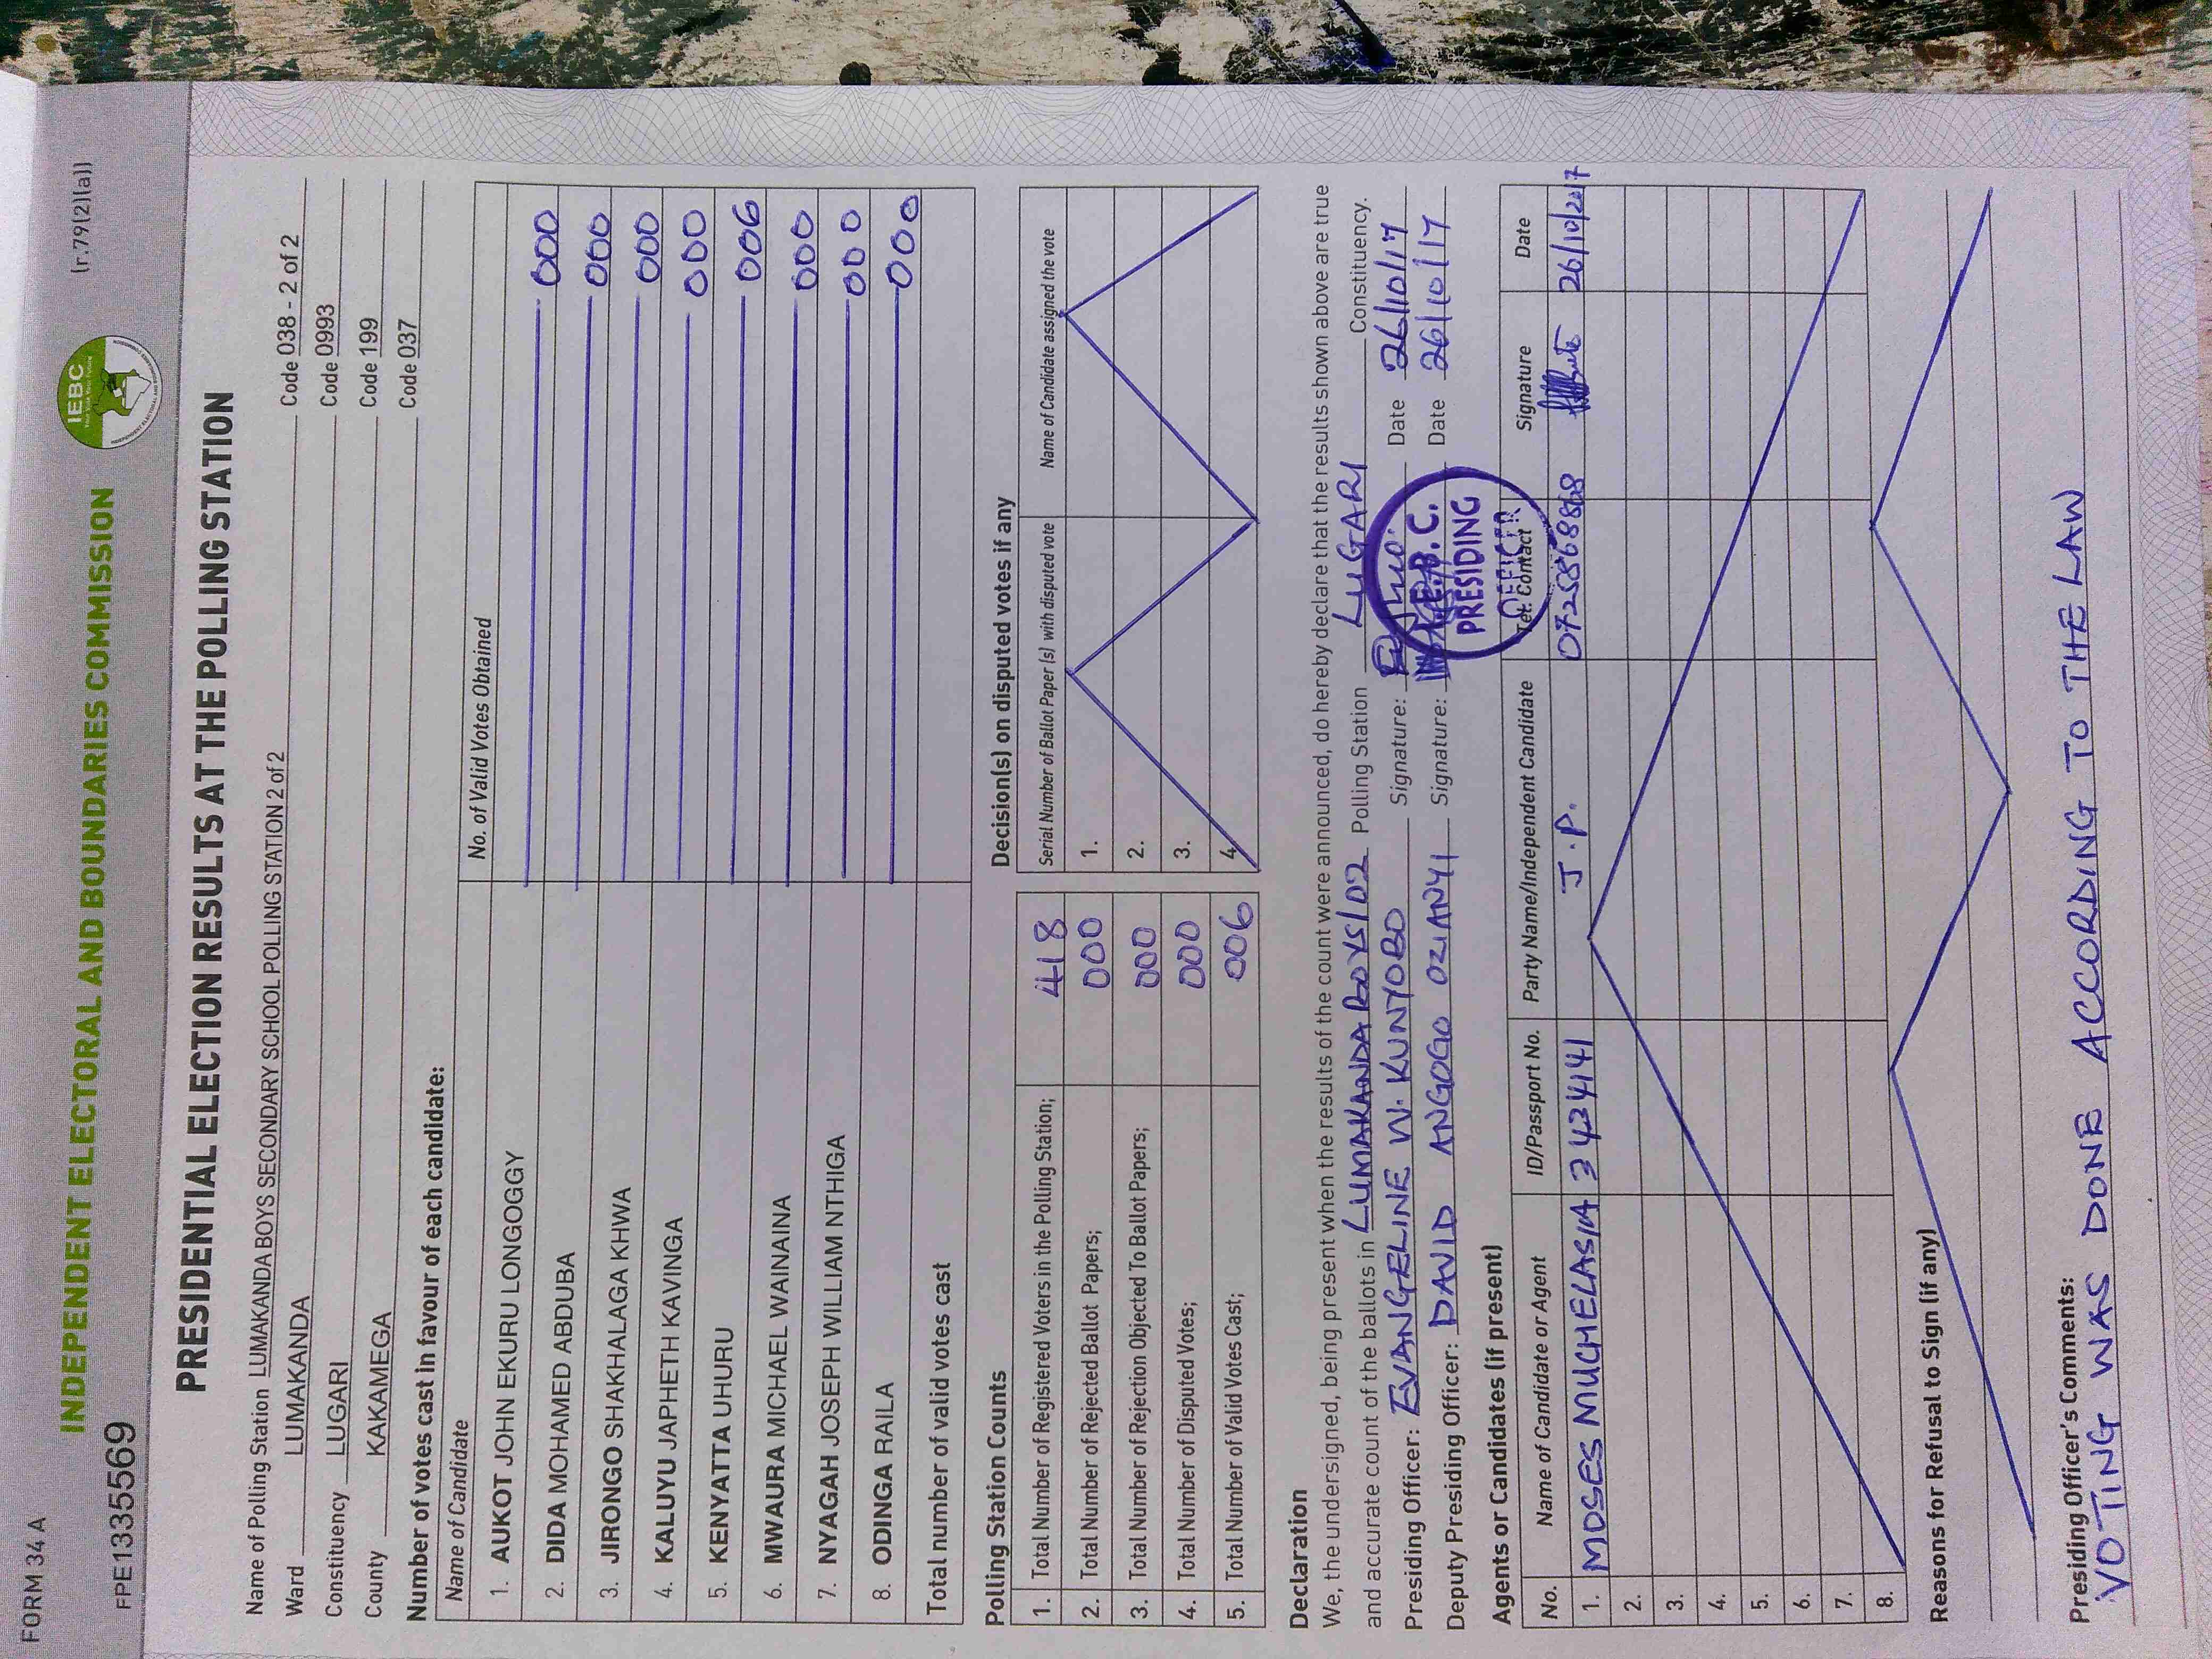 FORM 34 A
(r.79(2)(a))
INDEPENDENT ELECTORAL AND BOUNDARIES COMMISSION
IEBC
FPE1335569
PRESIDENTIAL ELECTION RESULTS AT THE POLLING STATION
Name of Polling Station LUMAKANDA BOYS SECONDARY SCHOOL POLLING STATION 2 of 2 Code 038 - 2 of 2
Ward LUMAKANDA Code 0993
Constituency LUGARI Code 199
County KAKAMEGA Code 037
Number of votes cast in favour of each candidate:
Name of Candidate No. of Valid Votes Obtained
1. AUKOT JOHN EKURU LONGOGGY 000
2. DIDA MOHAMED ABDUBA 000
3. JIRONGO SHAKHALAGA KHWA 000
4. KALUYU JAPHETH KAVINGA 000
5. KENYATTA UHURU 006
6. MWAURA MICHAEL WAINAINA 000
7. NYAGAH JOSEPH WILLIAM NTHIGA 000
8. ODINGA RAILA 000
Total number of valid votes cast
Polling Station Counts
1. Total Number of Registered Voters in the Polling Station; 418
2. Total Number of Rejected Ballot Papers; 000
3. Total Number of Rejection Objected To Ballot Papers; 000
4. Total Number of Disputed Votes; 000
5. Total Number of Valid Votes Cast; 006
Decision(s) on disputed votes if any
Serial Number of Ballot Paper (s) with disputed vote Name of Candidate assigned the vote
1.
2.
3.
4.
Declaration
We, the undersigned, being present when the results of the count were announced, do hereby declare that the results shown above are true
and accurate count of the ballots in LUMAKANDA BOYS/02 Polling Station LUGARI Constituency.
Presiding Officer: EVANGELINE W. KUNYOBO Signature: Date 26/10/17
Deputy Presiding Officer: DAVID ANGOGO OZIANYI Signature: Date 26/10/17
I.E.B.C.
PRESIDING
OFFICER
Agents or Candidates (if present)
No. Name of Candidate or Agent ID/Passport No. Party Name/Independent Candidate Tel. Contact Signature Date
1. MOSES MUCHELASIA 3424141 J.P. 26/10/2017
2.
3.
4.
5.
6.
7.
8.
Reasons for Refusal to Sign (if any)
Presiding Officer's Comments:
VOTING WAS DONE ACCORDING TO THE LAW